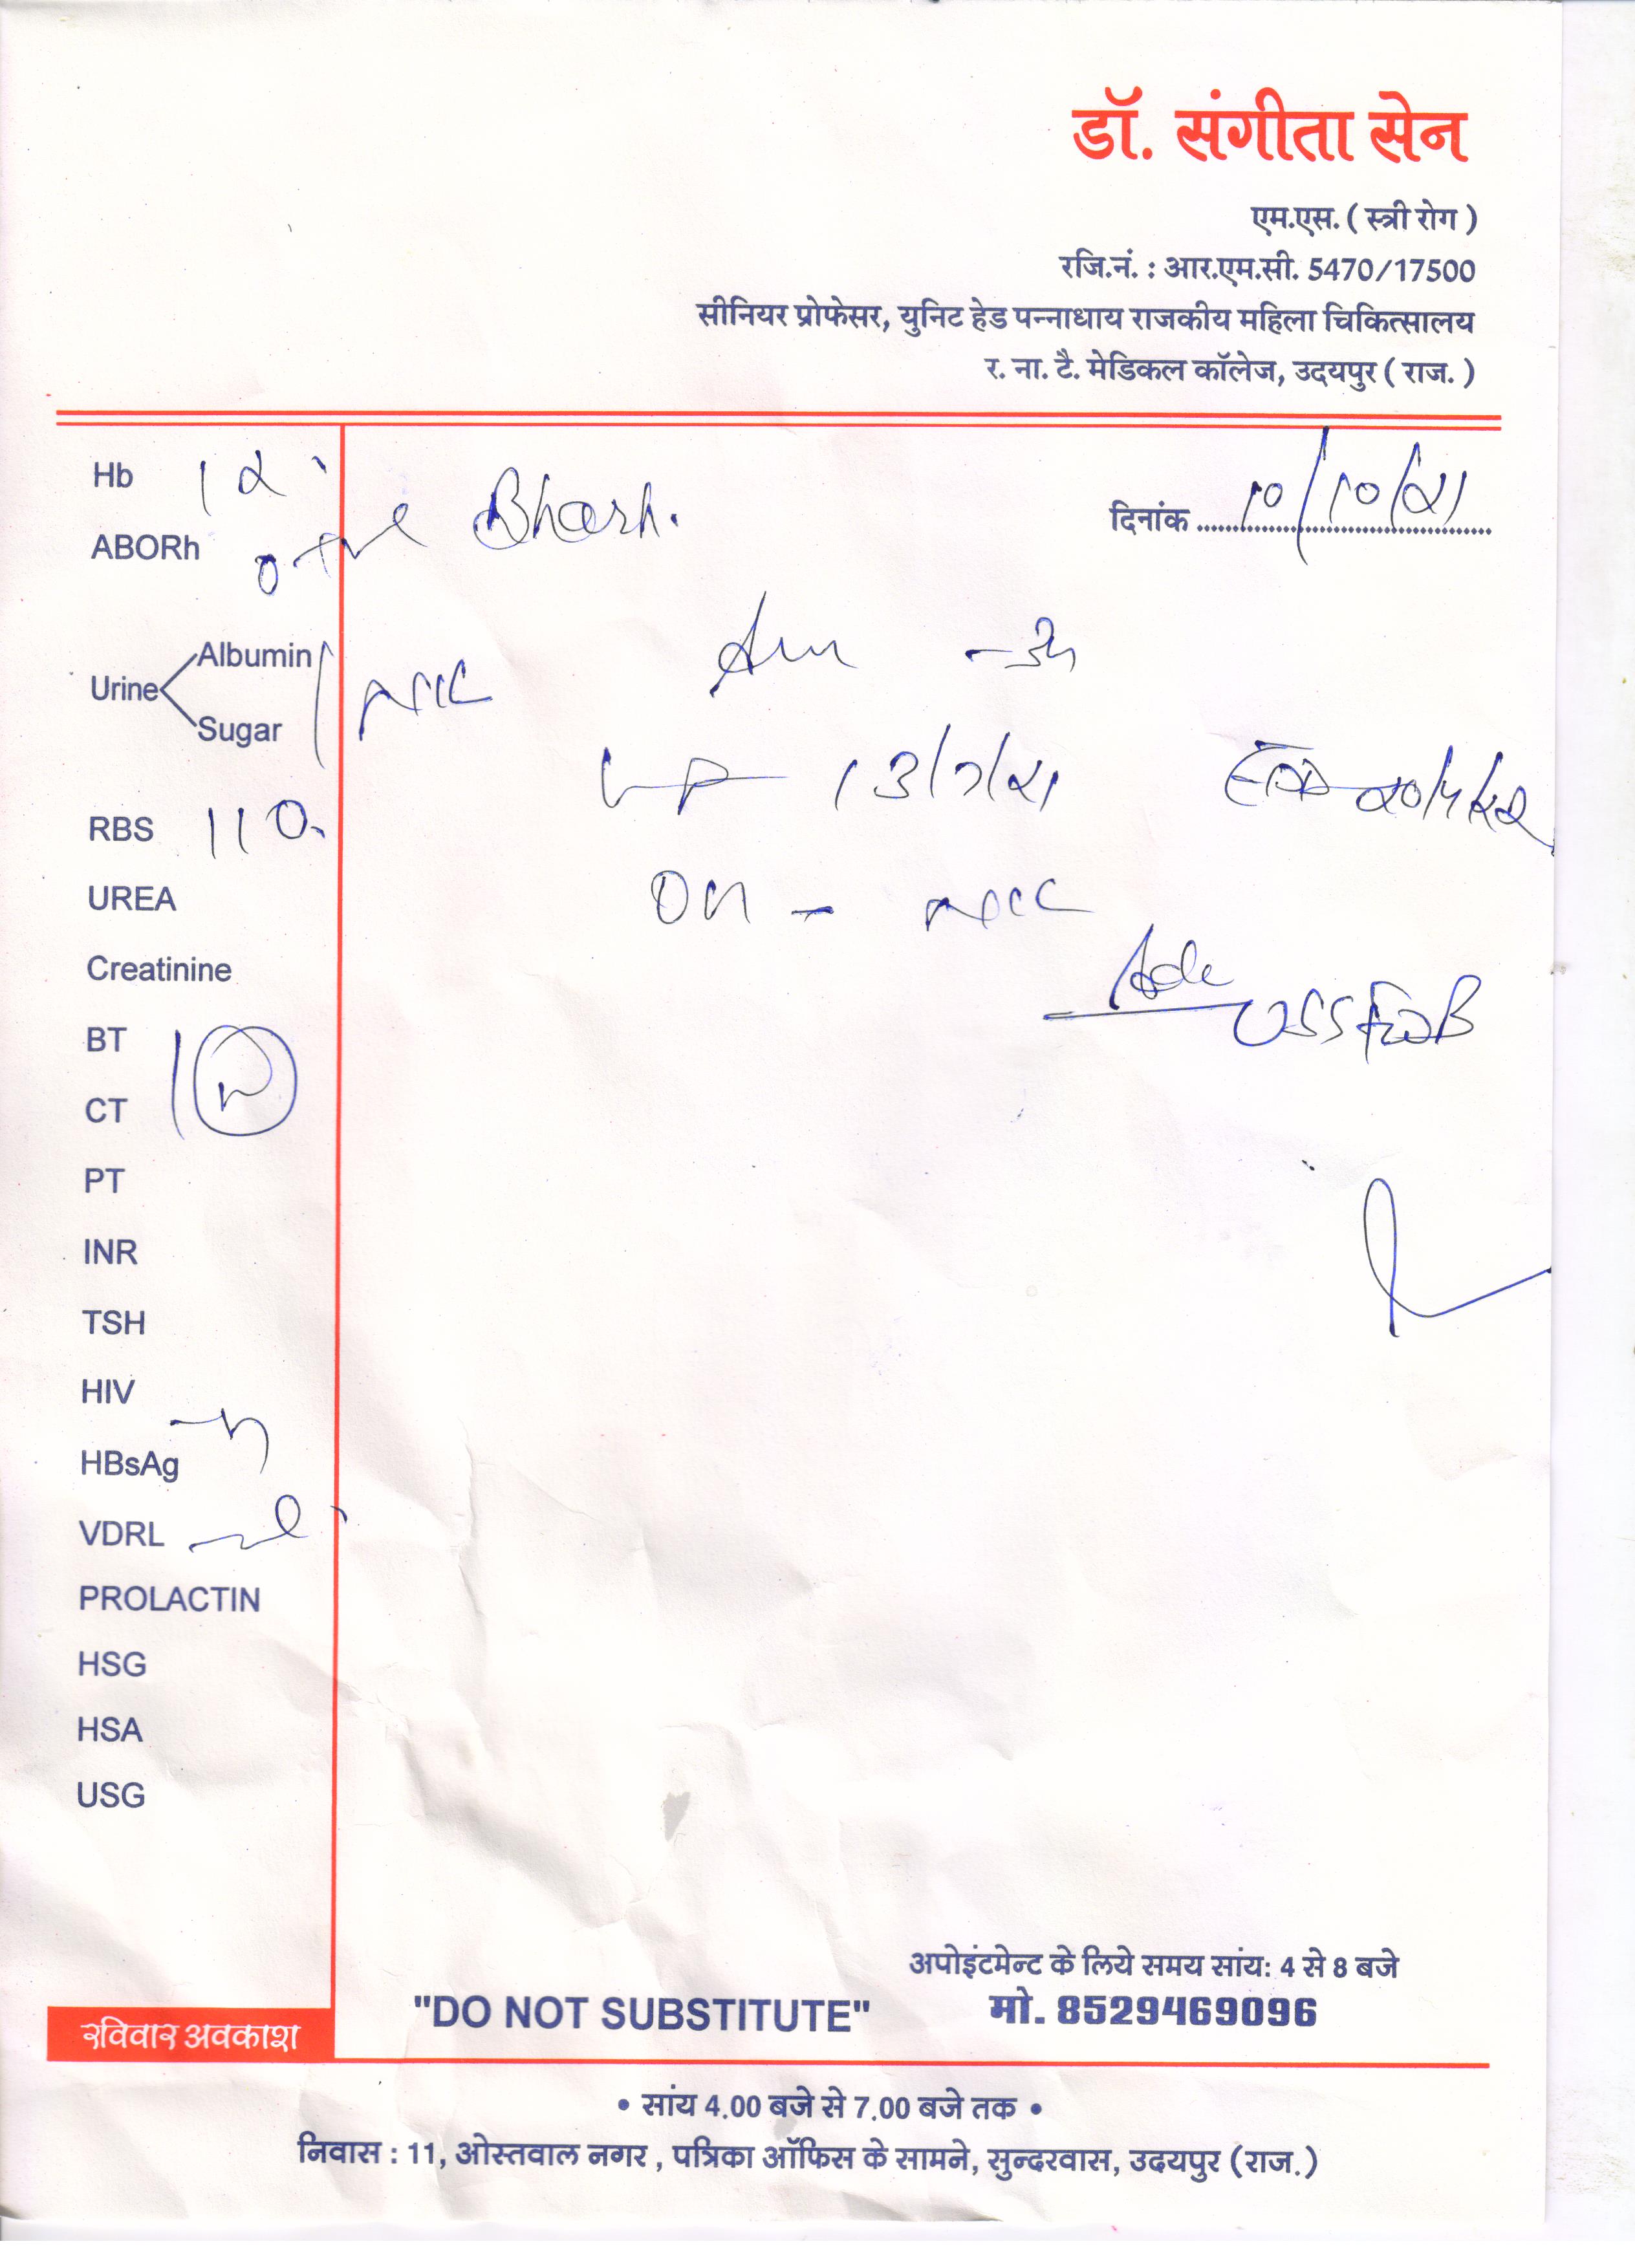 डॉ. संगीता सेन
एम.एस. ( स्त्री रोग )
रजि.नं. : आर.एम.सी. 5470/17500
सीनियर प्रोफेसर, युनिट हेड पन्नाधाय राजकीय महिला चिकित्सालय
र. ना. टै. मेडिकल कॉलेज, उदयपुर ( राज. )
दिनांक 10/10/21
Hb 12
ABORh O +ve
Urine Albumin Sugar Nil
13/7/21 20/4/22
RBS 110
UREA
Nil
Creatinine
BT
CT
PT
INR
TSH
HIV
HBsAg
VDRL
PROLACTIN
HSG
HSA
USG
अपोइंटमेन्ट के लिये समय सांय: 4 से 8 बजे
"DO NOT SUBSTITUTE" मो. 8529469096
रविवार अवकाश
• सांय 4.00 बजे से 7.00 बजे तक •
निवास : 11, ओस्तवाल नगर , पत्रिका ऑफिस के सामने, सुन्दरवास, उदयपुर (राज.)